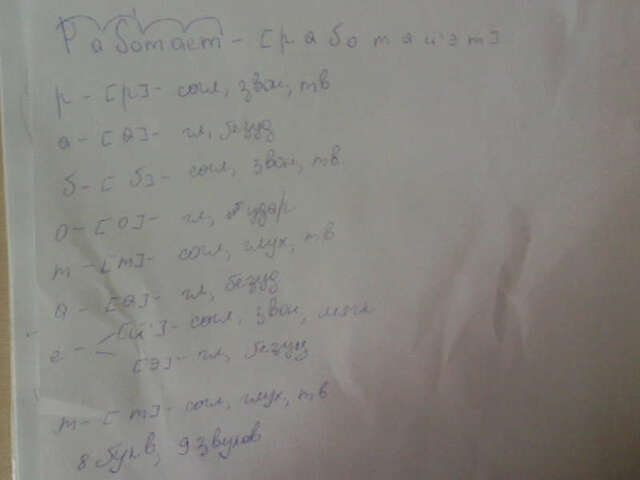 Работает - [работай'эт]
р - [р] - согл, звон, тв
а - [а] - гл, безуд
б - [б] - согл, звон, тв
о - [о] - гл, удар
т - [т] - согл, глух, тв
а - [а] - гл, безуд
е - [й'] - согл, звон, мягк
[э] - гл, безуд
т - [т] - согл, глух, тв
8 букв, 9 звуков